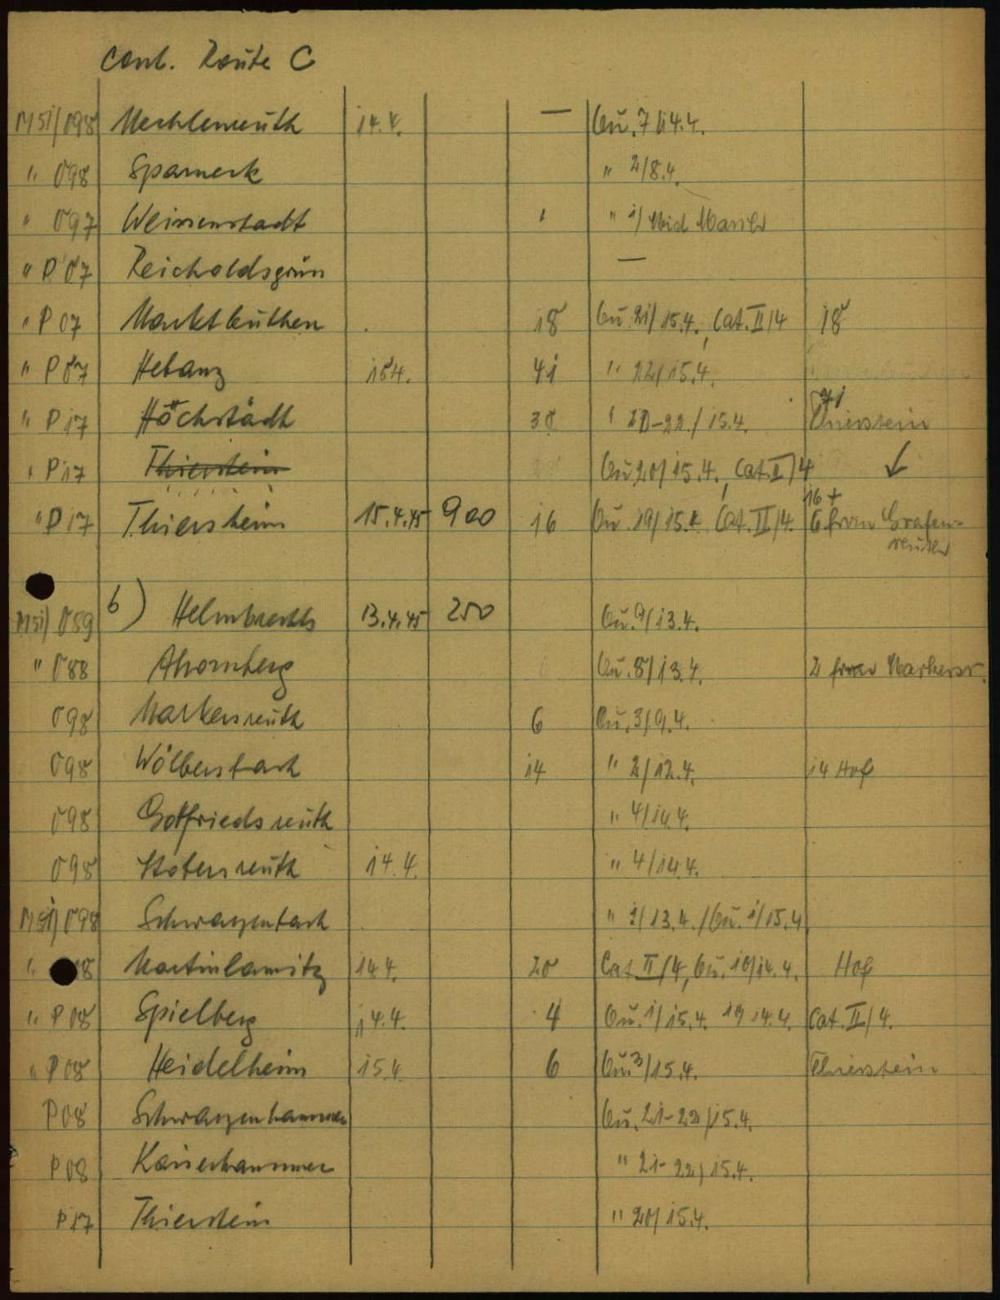 cont. Route C
M51/O98 Mechlenreuth 14.4. — Bü. 7/14.4.
" O98 Sparneck " 2/8.4.
" O97 Weissenstadt " 1/ Mid March
" P07 Reicholdsgrün —
" P07 Marktleuthen 18 Bü. 21/15.4., Cat. II/4 18
" P07 Hebanz 15.4. 41 " 22/15.4.
" P17 Höchstädt 30 " 20-22./15.4. 71 Thierstein
" P17 Thierstein Bü. 20/15.4., Cat. II/4 ↓
" P17 Thiersheim 15.4.45 900 16 Bü. 19/15.4. Cat. II/4. 16 + 6 from Grafen-
reuth
M51/O59 b) Helmbrechts 13.4.45 250 Bü. 9/13.4.
" O88 Ahornberg Bü. 8/13.4. 2 from Markersr.
O98 Markersreuth 6 Bü. 3/9.4.
O98 Wölbersbach 14 " 2/12.4. 14 Hof
O98 Gottfriedsreuth " 4/14.4.
O98 14.4. " 4/14.4.
M51/O98 Schwarzenbach " 2/13.4./Bü. 1/15.4.
" 08 Martinlamitz 14.4. 20 Cat II/4, Bü. 10/14.4. Hof
" P08 Spielberg 14.4. 4 Bü. 1/15.4. 19/14.4. Cat. II/4.
" P08 Heidelheim 15.4. 6 Bü. 3/15.4. Thierstein
P08 Schwarzenhammer Bü. 21-22/15.4.
P08 Kaiserhammer " 21-22/15.4.
P17 Thierstein " 20/15.4.